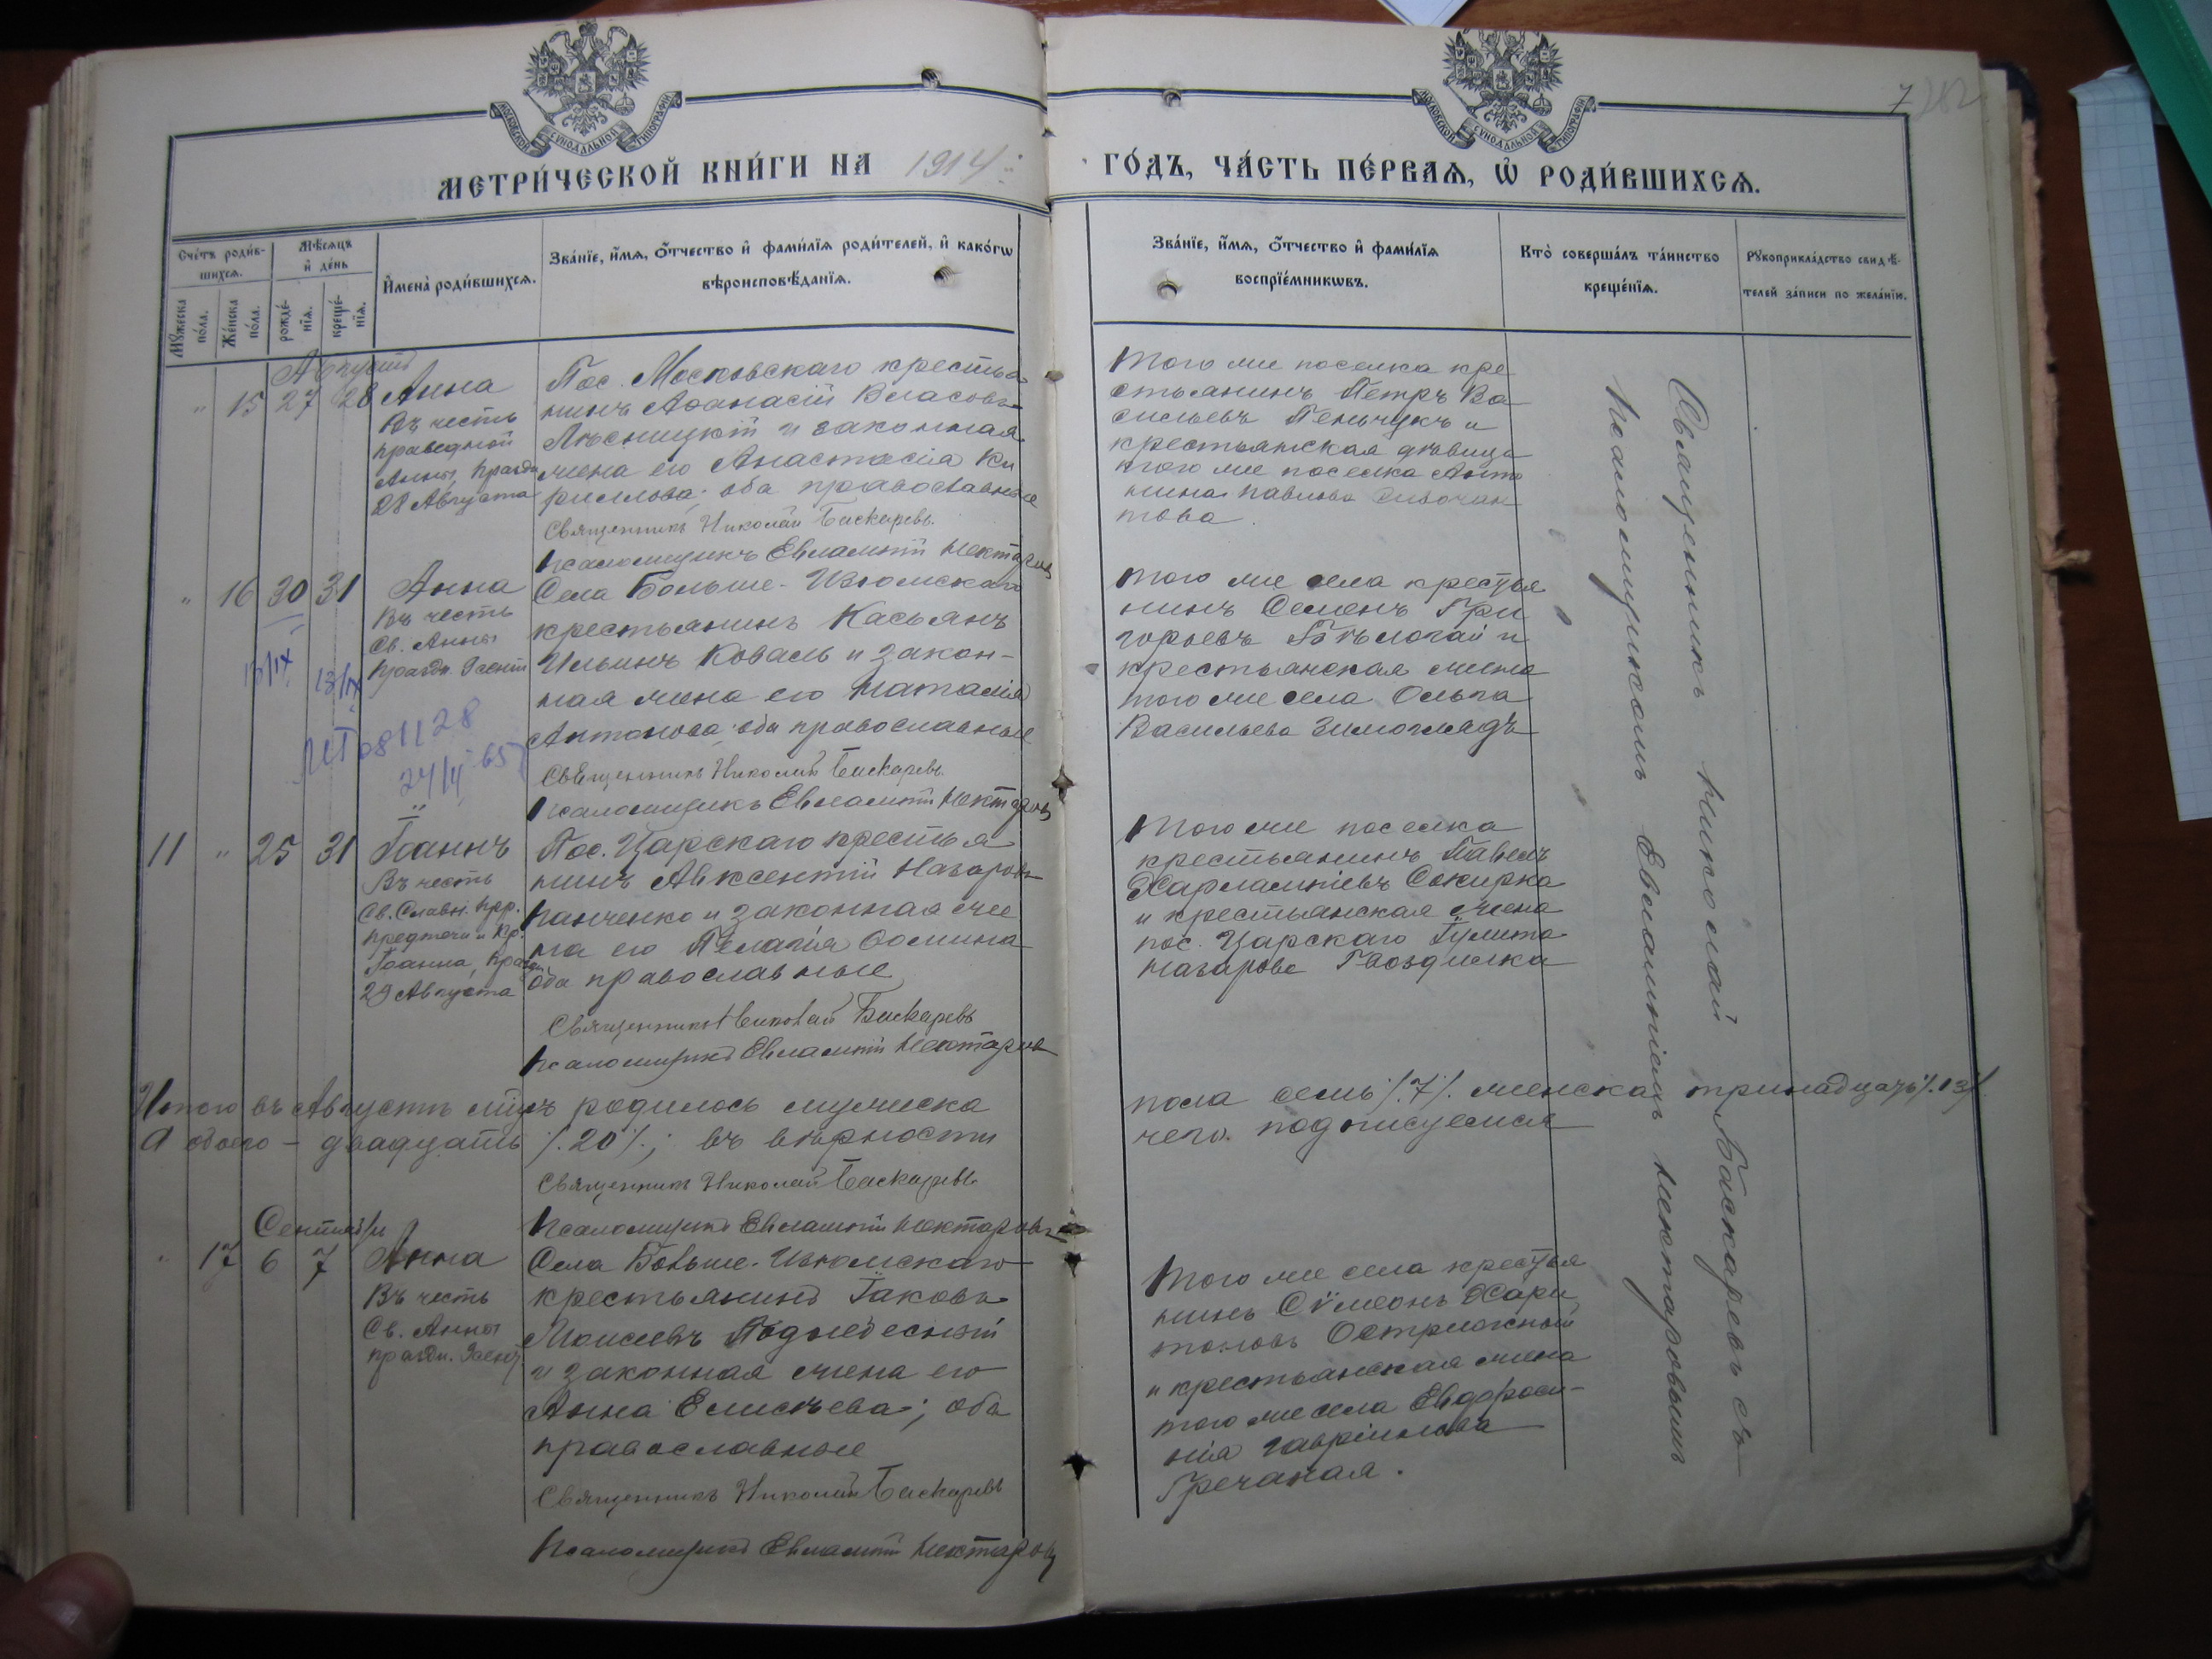 МОСКОВСКОЙ СѴНОДАЛЬНОЙ ТИПОГРАФІИ
МОСКОВСКОЙ СѴНОДАЛЬНОЙ ТИПОГРАФІИ
7
282
МЕТРИ́ЧЕСКОЙ КНИ́ГИ НА 1914
ГО́ДЪ, ЧА́СТЬ ПЕ́РВАѦ, Ѡ҆ РОДИ́ВШИХСѦ.
Сче́тъ роди́в-
шихсѧ.
Мꙋ́жеска по́ла.
Же́нска по́ла.
Мѣ́сѧцъ
и҆ де́нь
рожде́-
нїѧ.
креще́-
нїѧ.
И҆мена̀ роди́вшихсѧ.
Зва́нїе, и҆́мѧ, ѻ҆́тчество и҆ фами́лїѧ роди́телей, и҆ како́гѡ
вѣроисповѣ́данїѧ.
Зва́нїе, и҆́мѧ, ѻ҆́тчество и҆ фами́лїѧ
воспрїе́мникѡвъ.
Кто̀ соверша́лъ та́инство
креще́нїѧ.
Рꙋкоприкла́дство свидѣ́-
телей за́писи по жела́нїю.
Августъ
" 15 27 28 Анна
Въ честь
праведной
Анны, праздн
28 Августа
Пос. Московскаго крестья
нинъ Аѳанасій Власовъ
Лѣсницкій и законная
жена его Анастасія Ки
риллова; оба православные
Священникъ Николай Баскаревъ.
Псаломщикъ Евлампій Нектаровъ
Того же поселка кре
стьянинъ Петръ Ва
сильевъ Пеньчукъ и
крестьянская дѣвица
того же поселка Анто
нина Павлова
" 16 30 31 Анна
Въ честь
Св. Анны
праздн. 9 сент
13/IX 13/IX
081128
Села Больше-Изюмскаго
крестьянинъ Касьянъ
Ильинъ Коваль и закон-
ная жена его Наталія
Антонова; оба православные
Священникъ Николай Баскаревъ.
Псаломщикъ Евлампій Нектаровъ
Того же села крестья
нинъ Семенъ Гри
горьевъ Бѣлогай и
крестьянская жена
того же села Ольга
Васильева Зимоглядъ
11 " 25 31 Іоаннъ
Въ честь
Св. Славн. прр.
предтечи и Кр.
Іоанна, праздн
29 Августа
Пос. Царскаго крестья
нинъ Авксентій Назаровъ
Панченко и законная же
на его Пелагія Ѳомина
оба православные
Священникъ Николай Баскаревъ
Псаломщикъ Евлампій Нектаровъ
Того же поселка
крестьянинъ Павелъ
Харлампіевъ Секирка
и крестьянская жена
пос. Царскаго Іулита
Назарова Гвоздилка
Итого въ Августѣ мѣц родилось мужеска
пола семь /.7/. женска тринадцать /.13/.
А обоего – двадцать /.20/.; въ вѣрности
чего подписуемся
Священникъ Николай Баскаревъ
Псаломщикъ Евлампій Нектаровъ
Сентябрь
" 17 6 7 Анна
Въ честь
Св. Анны
праздн. 9 сент.
Села Больше-Изюмскаго
крестьянинъ Іаковъ
Моисеевъ
и законная жена его
Анна Елисѣева; оба
православные
Священникъ Николай Баскаревъ
Псаломщикъ Евлампій Нектаровъ
Того же села крестья
нинъ Сѵмеонъ Хари
тоновъ Острижный
и крестьянская жена
того же села Евдроси-
нія Гавріилова
Гречаная.
Священникъ Николай Баскаревъ съ
Псаломщикомъ Евлампіемъ Нектаровымъ